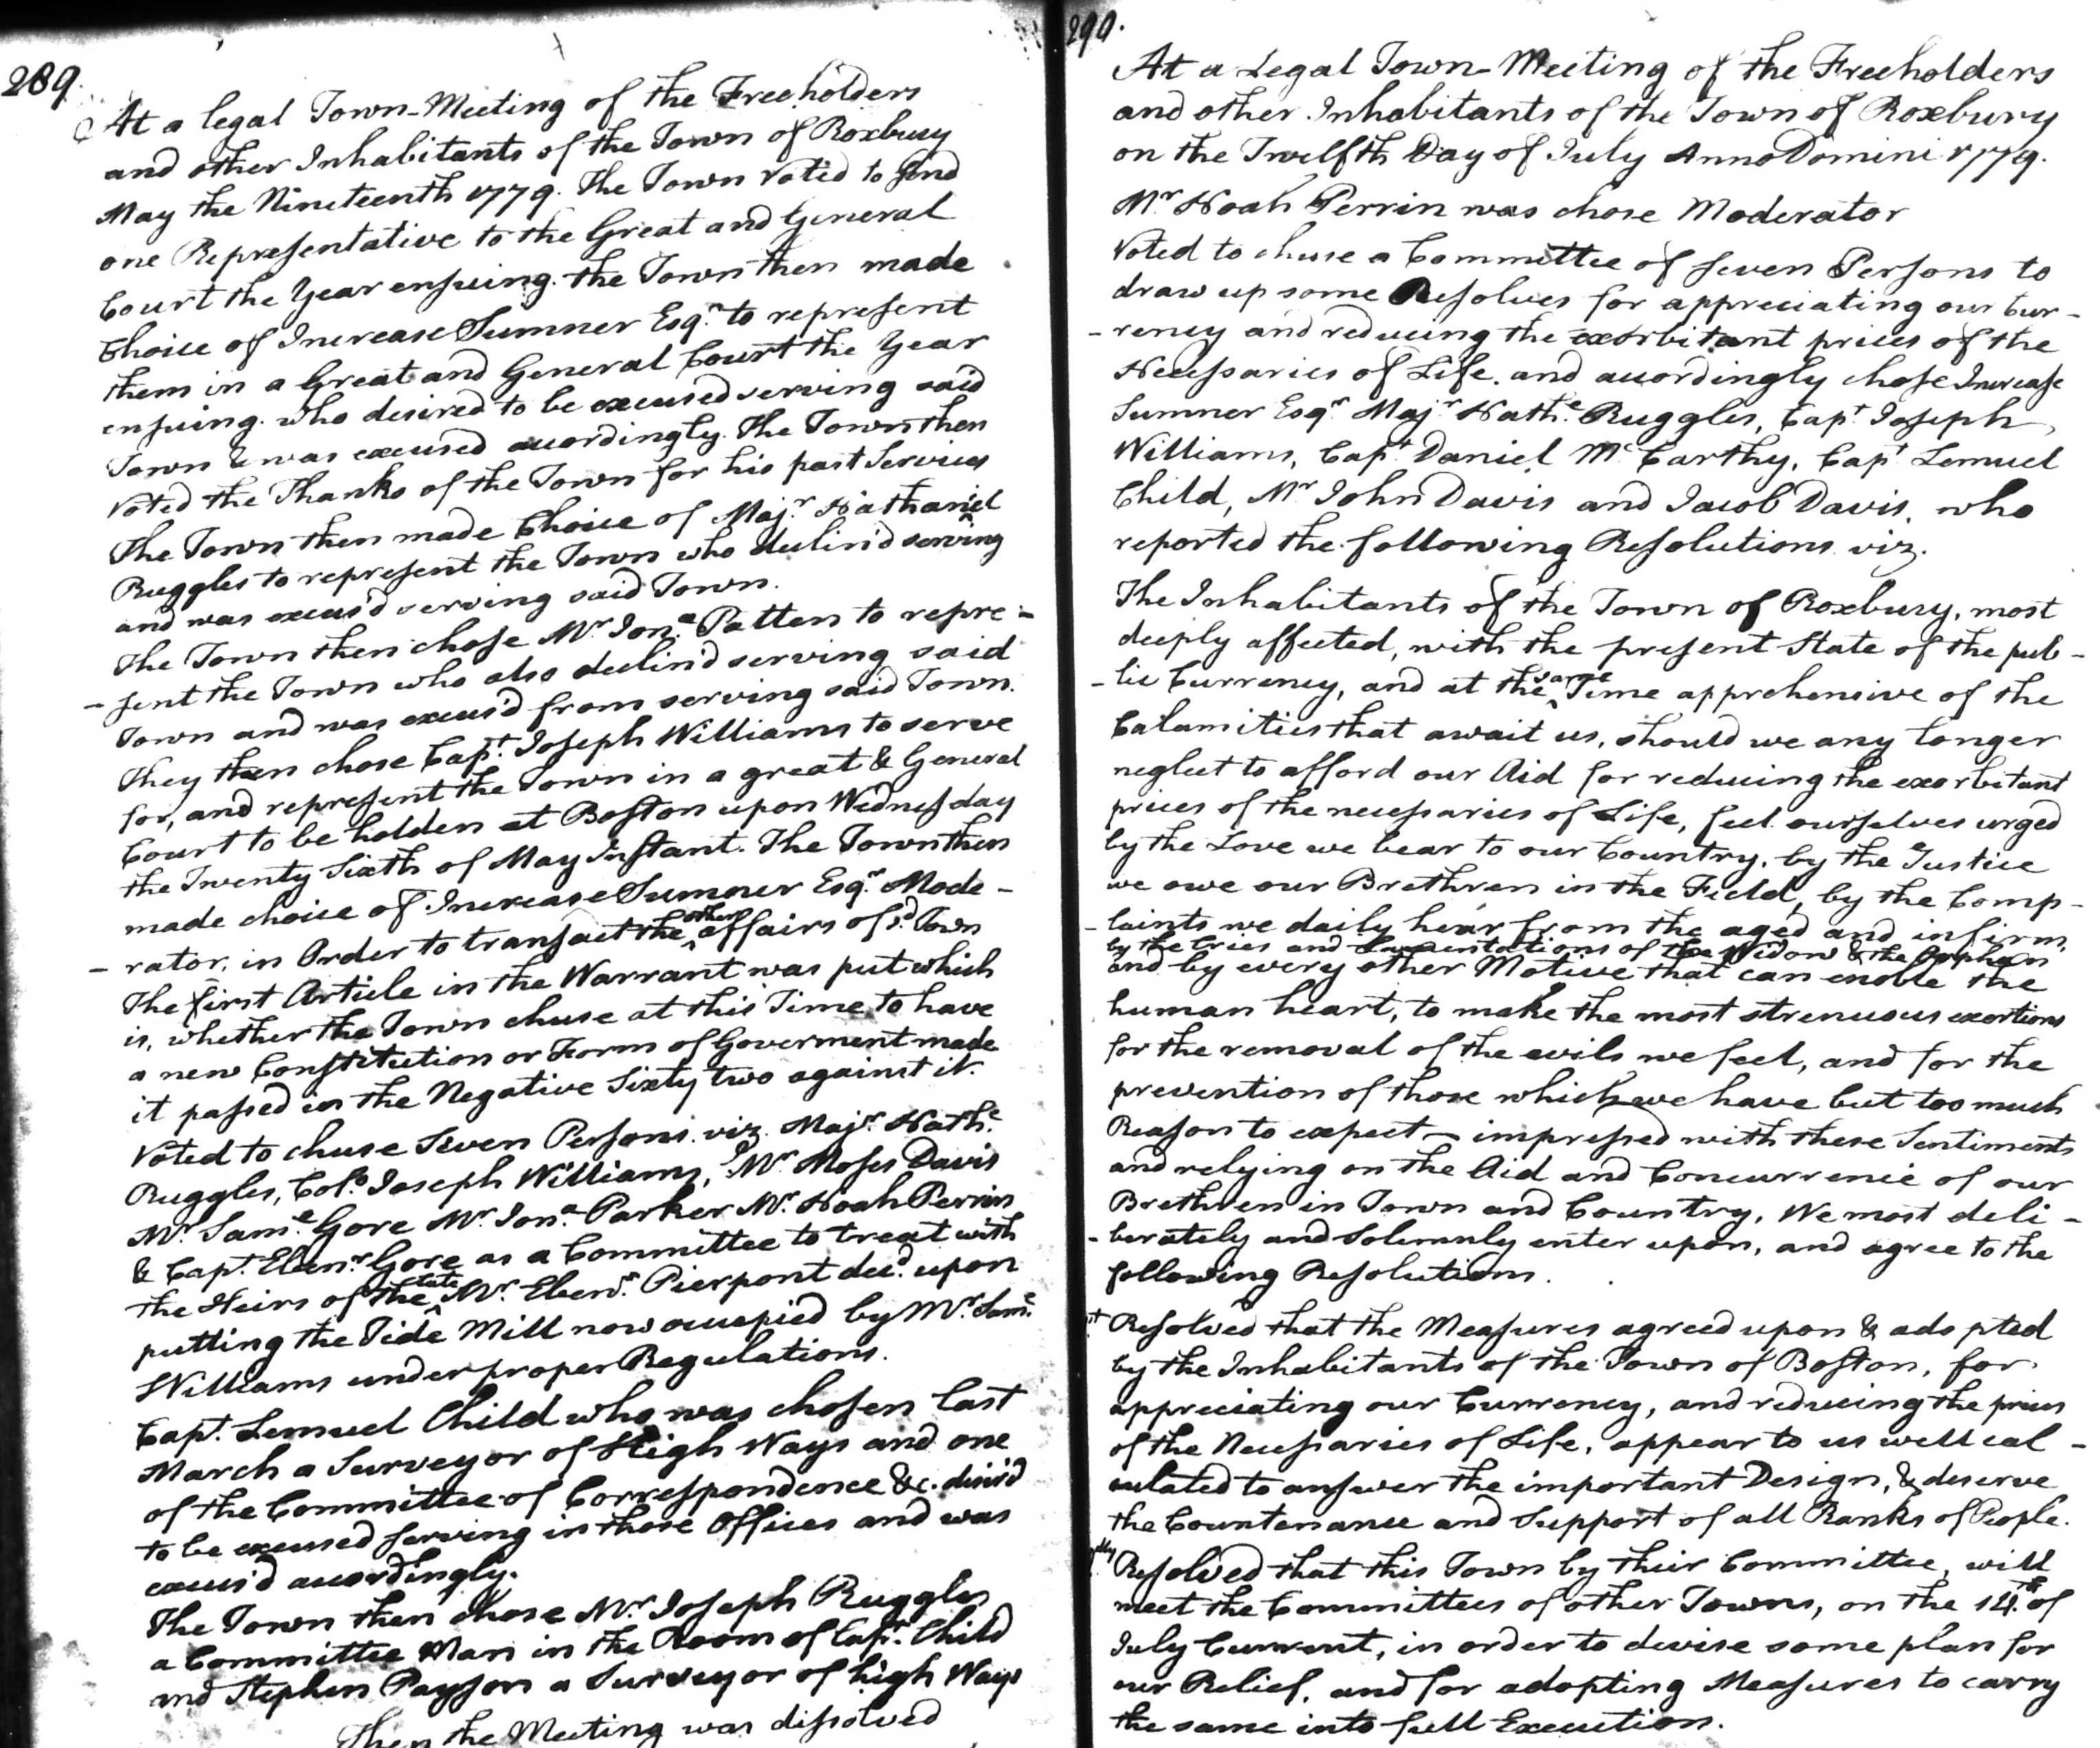 289.
At a legal Town-Meeting of the Freeholders
and other Inhabitants of the Town of Roxbury
May the Nineteenth 1779. The Town Voted to send
one Representative to the Great and General
Court the Year ensuing. the Town then made
Choice of Increase Sumner Esqr. to represent
them in a Great and General Court the Year
ensuing. who desired to be excused serving said
Town & was excused accordingly. The Town then
Voted the Thanks of the Town for his past Services
The Town then made Choice of Majr. Nathaniel
Ruggles to represent the Town who declin'd serving
and was excus'd serving said Town.
The Town then chose Mr Jona. Patten to repre-
-sent the Town who also declin'd serving said
Town and was excus'd from serving said Town.
They then chose Capt. Joseph Williams to serve
for, and represent the Town in a great & General
Court to be holden at Boston upon Wednesday
the Twenty Sixth of May Instant. The Town then
made choice of Increase Sumner Esqr. Mode-
-rator, in Order to transact the other affairs of sd. Town
The first Article in the Warrant was put which
is, whether the Town chuse at this Time to have
a new Constitution or Form of Goverment made
it passed in the Negative Sixty two against it.
Voted to chuse Seven Persons. viz Majr. Nathl.
Ruggles, Colo. Joseph Williams, Mr Moses Davis
Mr. Saml. Gore Mr. Jona. Parker Mr. Noah Perrin
& Capt. Ebenr. Gore as a Committee to treat with
the Heirs of the late Mr. Ebenr. Pierpont decd. upon
putting the Tide Mill now occupied by Mr. Saml.
Williams under proper Regulations.
Capt. Lemuel Child who was chosen last
March a Surveyor of High Ways and one
of the Committee of Correspondence &c. desir'd
to be excused serving in those Offices and was
excus'd accordingly.
The Town then chose Mr. Joseph Ruggles
a Committee Man in the Room of Capt. Child
and Stephen Payson a Surveyor of high Ways
Then the Meeting was dissolved
290.
At a Legal Town-Meeting of the Freeholders
and other Inhabitants of the Town of Roxbury
on the Twelfth Day of July Anno Domini 1779.
Mr Noah Perrin was chose Moderator
Voted to chuse a Committee of seven Persons to
draw up some Resolves for appreciating our Cur-
-rency and reducing the exorbitant prices of the
Necessaries of Life. and accordingly chose Increase
Sumner Esqr. Majr Nathl. Ruggles, Capt Joseph
Williams, Capt Daniel McCarthy, Capt Lemuel
Child, Mr John Davis and Jacob Davis, who
reported the following Resolutions viz.
The Inhabitants of the Town of Roxbury, most
deeply affected, with the present State of the pub-
-lic Currency, and at the same Time apprehensive of the
Calamities that await us, should we any longer
neglect to afford our Aid for reducing the exorbitant
prices of the necessaries of Life, feel ourselves urged
by the Love we bear to our Country, by the Justice
we owe our Brethren in the Field, by the Comp-
-laints we daily hear from the aged and infirm,
by the Cries and Lamentations of the Widow & the Orphan
and by every other Motive that can enoble the
human heart, to make the most strenuous exertions
for the removal of the evils we feel, and for the
prevention of those which we have but too much
Reason to expect - impressed with these Sentiments
and relying on the Aid and Concurrence of our
Brethren in Town and Country, We most deli-
-berately and Solemnly enter upon, and agree to the
following Resolutions.
1st Resolved that the Measures agreed upon & adopted
by the Inhabitants of the Town of Boston, for
appreciating our Currency, and reducing the prices
of the Necessaries of Life, appear to us well cal-
culated to answer the important Design, & deserve
the Countenance and Support of all Ranks of People.
2dly Resolved that this Town by their Committee, will
meet the Committees of other Towns, on the 14th. of
July Current, in order to devise some plan for
our Relief, and for adopting Measures to carry
the same into full Execution.